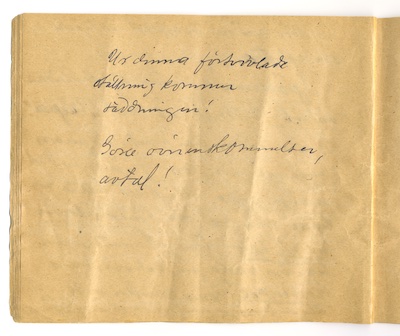 Ur dinna förtvivlade
ställning kommer
räddningin!
överenskommelser,
avtal!